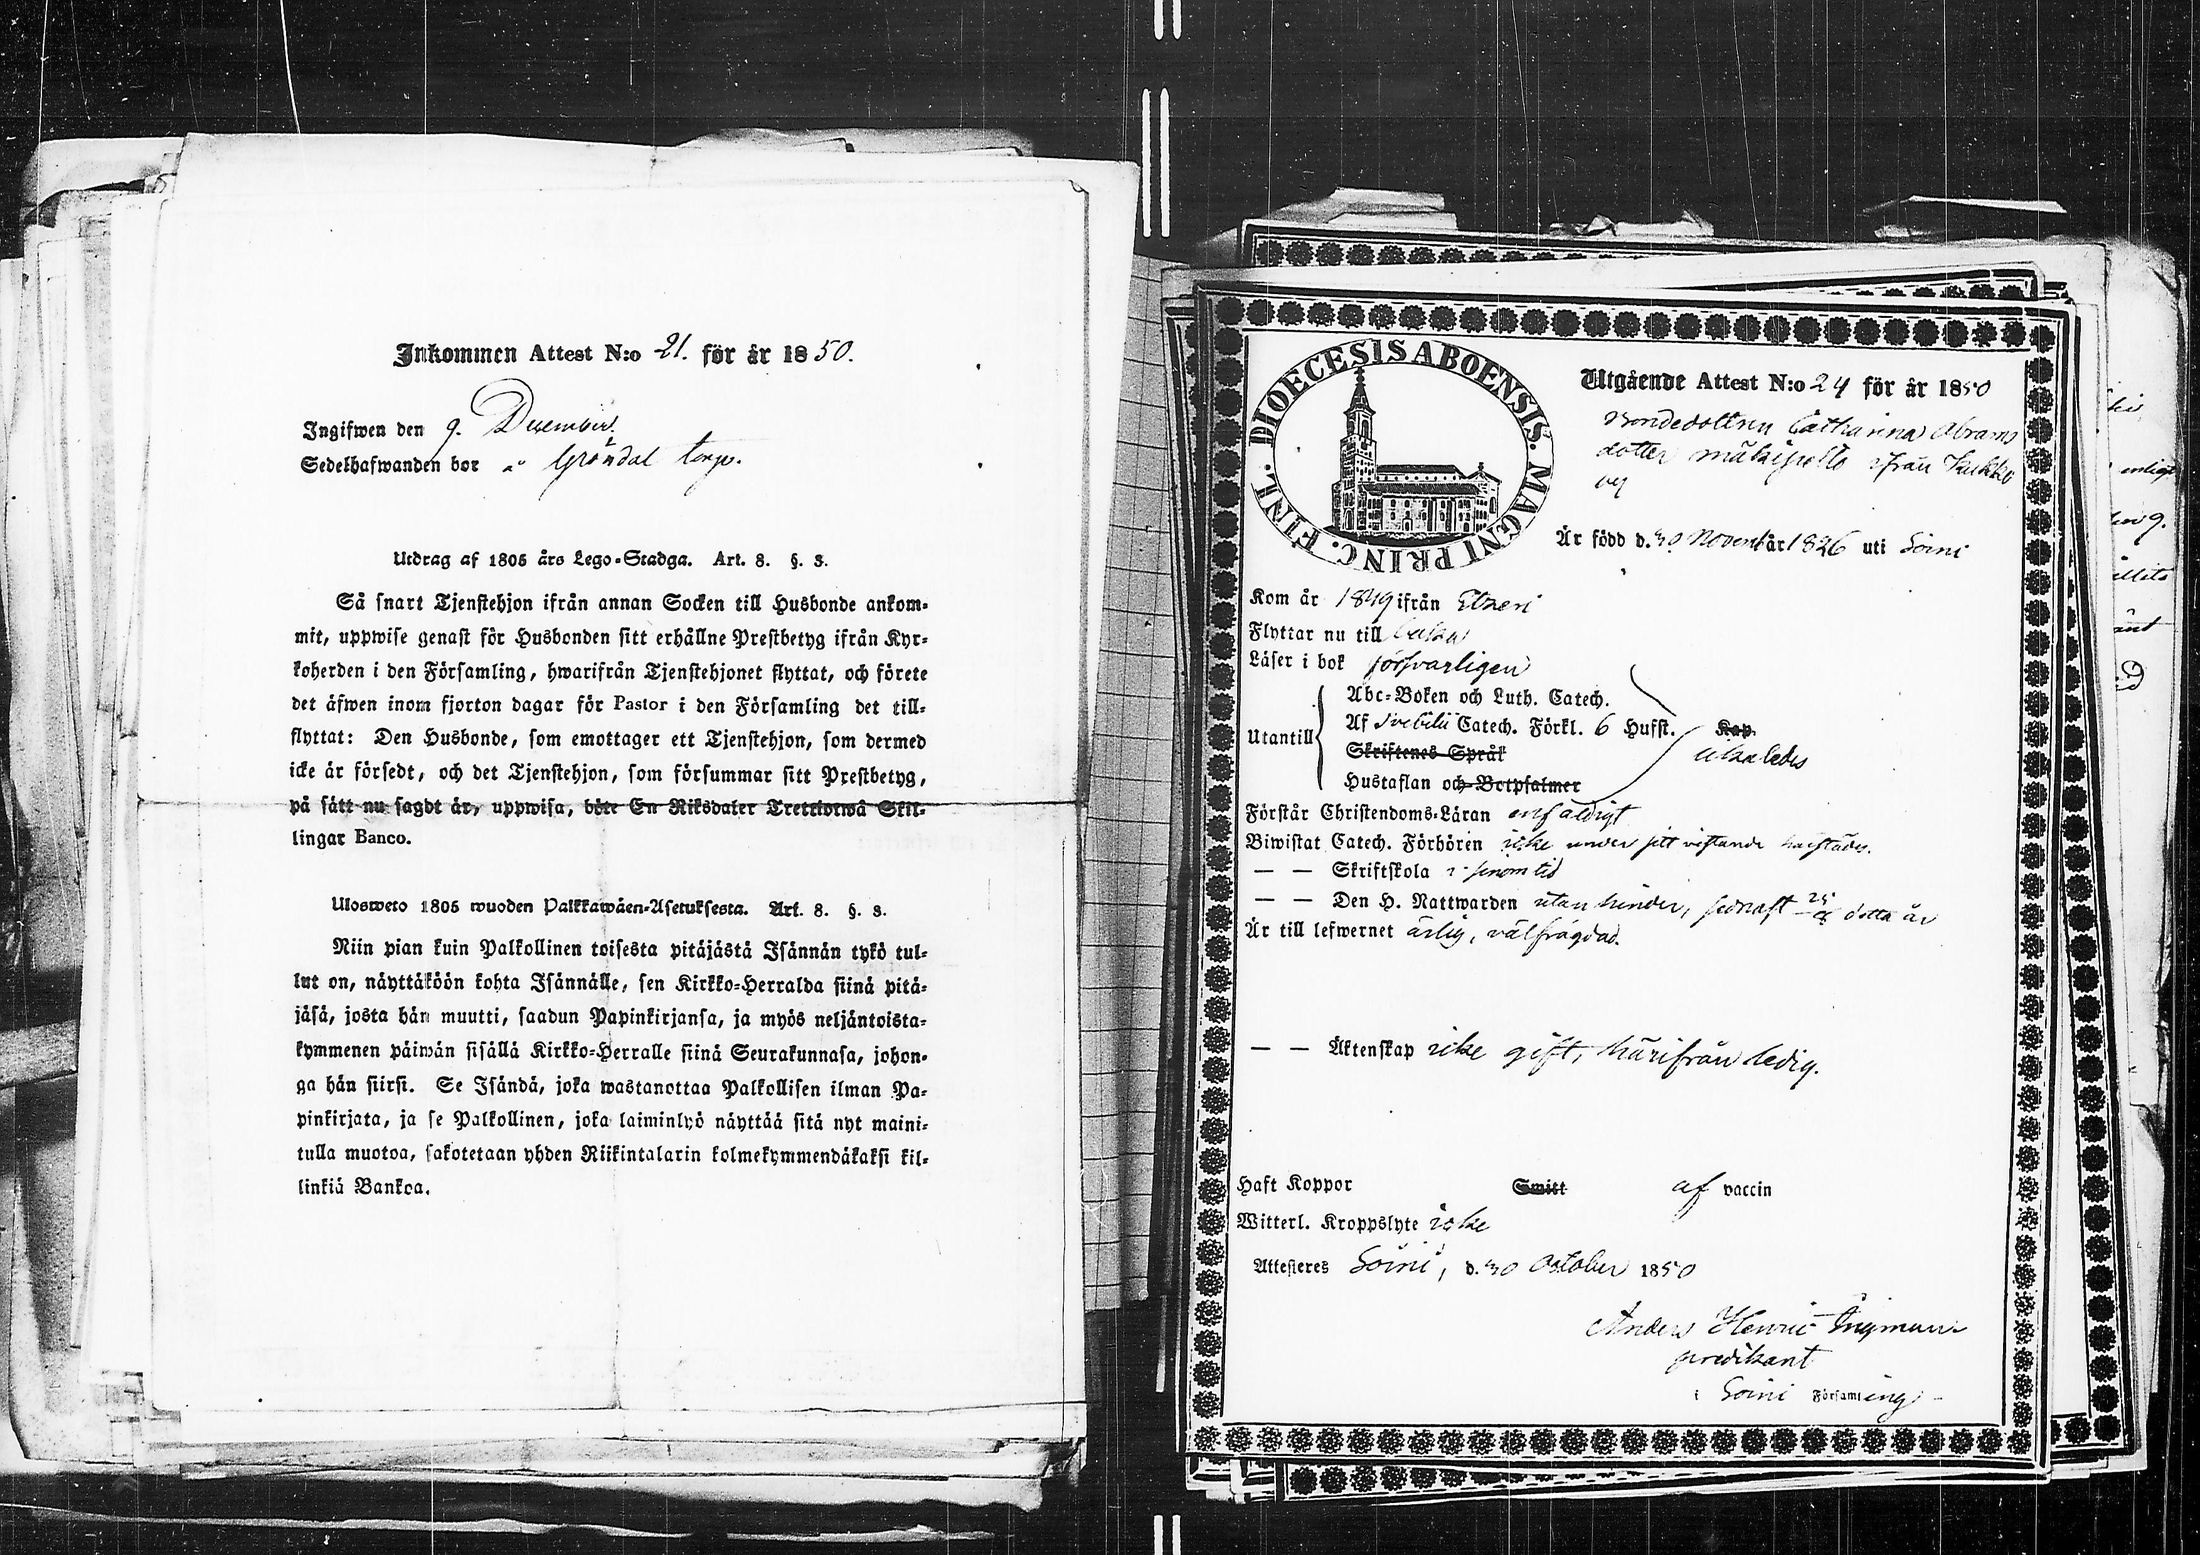 Inkommen Attest N:o 21. för år 1850.
Ingifwen den 9. December.
Sedelhafwanden bor å Gröndal torp.
Utdrag af 1805 års Lego-Stadga. Art. 8. §. 3.
Så snart Tjenstehjon ifrån annan Socken till Husbonde ankom-
mit, uppwise genast för Husbonden sitt erhållne Prestbetyg ifrån Kyr-
koherden i den Församling, hwarifrån Tjenstehjonet flyttat, och förete
det äfwen inom fjorton dagar för Pastor i den Församling det till-
flyttat: Den Husbonde, som emottager ett Tjenstehjon, som dermed
icke är försedt, och det Tjenstehjon, som försummar sitt Prestbetyg,
på sätt nu sagdt är, uppwisa, böte En Riksdaler Trettiotwå Skil-
lingar Banco.
Ulosweto 1805 wuoden Palkkawäen-Asetuksesta. Art. 8. §. 3.
Niin pian kuin Palkollinen toisesta pitäjästä Isännän tykö tul-
lut on, näyttäköön kohta Isännälle, sen Kirkko-Herralda siinä pitä-
jäsä, josta hän muutti, saadun Papinkirjansa, ja myös neljäntoista-
kymmenen päiwän sisällä Kirkko-Herralle siinä Seurakunnasa, johon-
ga hän siirsi. Se Isändä, joka wastanottaa Palkollisen ilman Pa-
pinkirjata, ja se Palkollinen, joka laiminlyö näyttää sitä nyt maini-
tulla muotoa, sakotetaan yhden Riikintalarin kolmekymmendäkaksi kil-
linkiä Bankoa.
DIOECESIS ABOENSIS. MAGNI PRINC. FINL.
Utgående Attest N:o 24 för år 1850
Bondedottren Catharina Abrams
dotter Mäkipelto ifrån Kukko
by
Är född d. 30 Novemb år 1826 uti Soini
Kom år 1849 ifrån Etseri
Flyttar nu till
Läser i bok försvarligen
Utantill
Abc-Boken och Luth. Catech.
Af Svebilii Catech. Förkl. 6 Hufst. Kap.
Skriftenes Språk
Hustaflan och Botpsalmer
likaledes
Förstår Christendoms-Läran enfaldigt
Biwistat Catech. Förhören icke under sitt vistande härstädes.
— — Skriftskola i sinom tid
— — Den H. Nattwarden utan hinder, sednast 25 detta år
Är till lefwernet ärlig, välfrägdad.
— — Äktenskap icke gift, härifrån ledig.
Haft Koppor Smitt af vaccin
Witterl. Kroppslyte icke
Attesteres Soini, d. 30 October 1850
Anders Henric Ingman
predikant
i Soini Församling